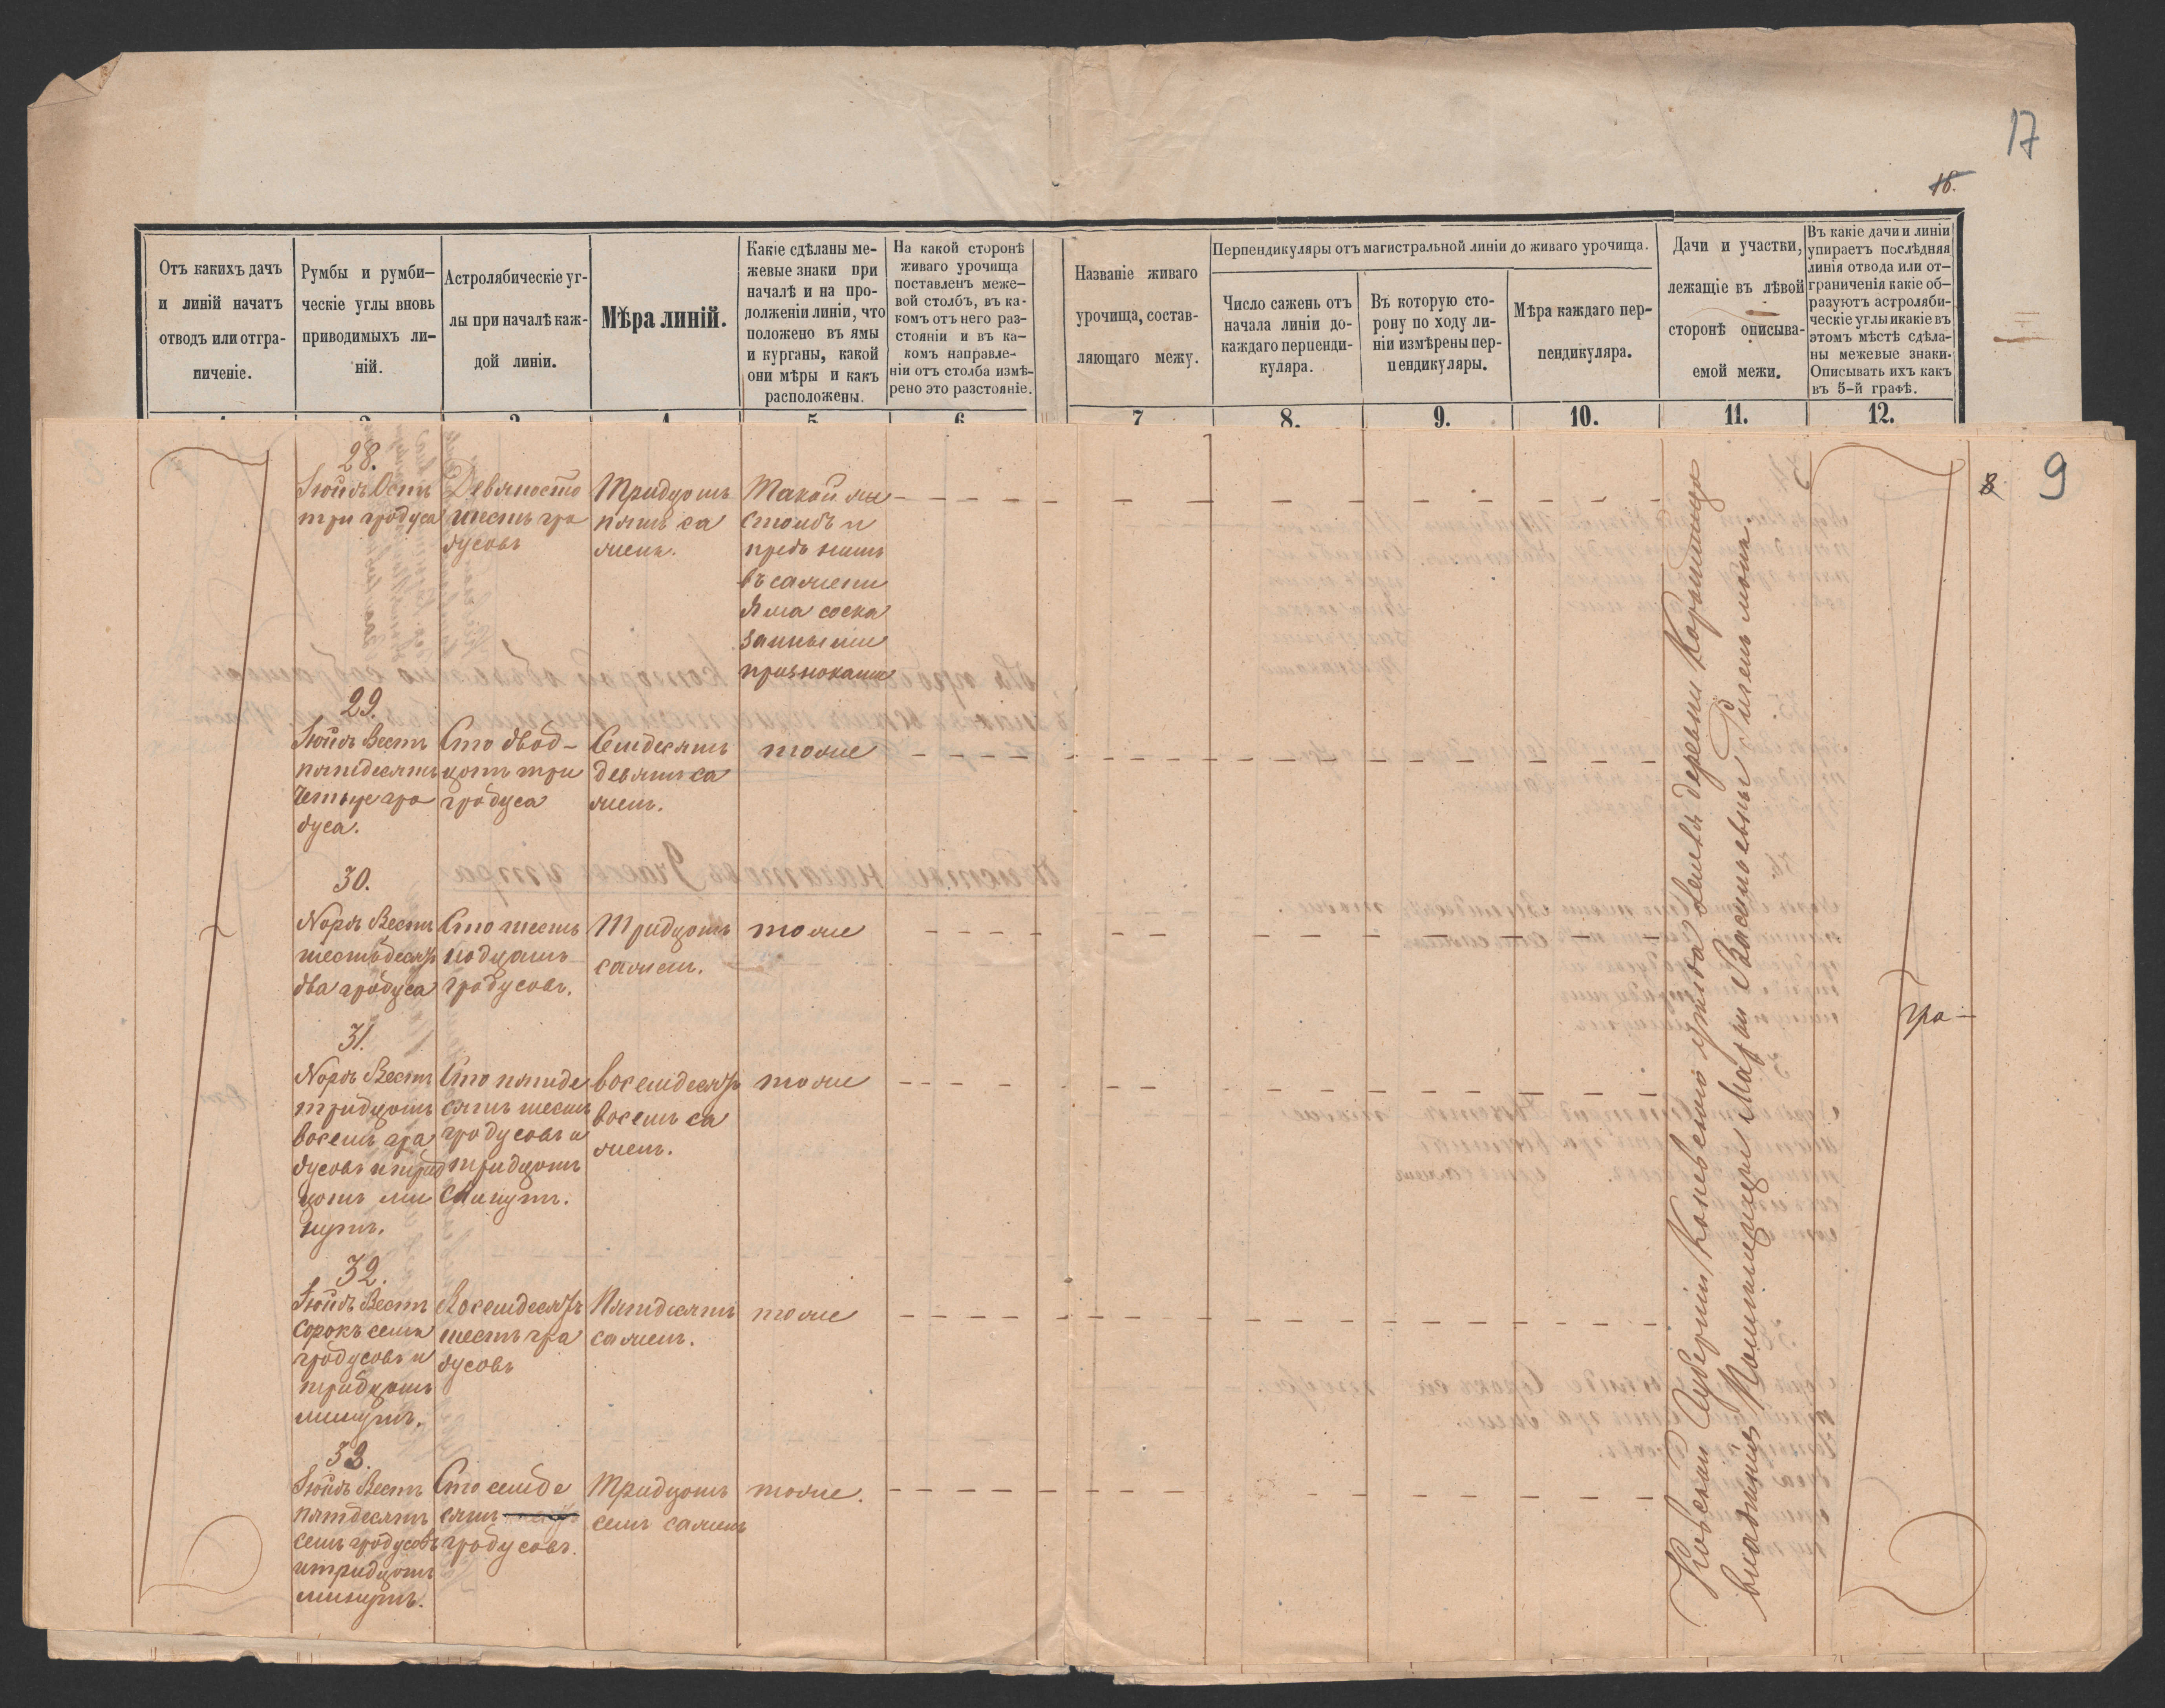 17
18.
Отъ какихъ дачъ
и линій начатъ
отводъ или отгра-
ниченіе.
Румбы и румби-
ческіе углы вновь
приводимыхъ ли-
ній.
Астролябическіе уг-
лы при началѣ каж-
дой линіи.
Мѣра линій.
Какіе сдѣланы ме-
жевые знаки при
началѣ и на про-
долженіи линіи, что
положено въ ямы
и курганы, какой
они мѣры и какъ
расположены.
На какой сторонѣ
живаго урочища
поставленъ меже-
вой столбъ, въ ка-
комъ отъ него раз-
стояніи и въ ка-
комъ направле-
ніи отъ столба измѣ-
рено это разстояніе.
Названіе живаго
урочища, состав-
ляющаго межу.
Перпендикуляры отъ магистральной линіи до живаго урочища.
Число сажень отъ
начала линіи до-
каждаго перпенди-
куляра.
Въ которую сто-
рону по ходу ли-
ніи измѣрены пер-
пендикуляры.
Мѣра каждаго пер-
пендикуляра.
Дачи и участки,
лежащіе въ лѣвой
сторонѣ описыва-
емой межи.
Въ какіе дачи и линіи
упираетъ послѣдняя
линія отвода или от-
граниченія какіе об-
разуютъ астроляби-
ческіе углы и какіе въ
этомъ мѣстѣ сдѣла-
ны межевые знаки.
Описывать ихъ какъ
въ 5-й графѣ.
7 8. 9. 10. 11. 12.
8 9
28.
Зюйдъ Остъ
три градуса
Девяносто
шесть гра
дусовъ
Тридцать
пять са
жень.
Такой же
столбъ и
предъ нимъ
въ сажени
яма со ска
занными
признаками
29.
Зюйдъ Вестъ
пятдесятъ
четыре гра
дуса.
Сто двад-
цать три
градуса
Семдесятъ
девять са
жень.
тоже
30.
Nордъ Вестъ
шестьдесятъ
два градуса
Сто шест
надцать
градусовъ.
Тридцать
сажень.
тоже
31.
Nордъ Вестъ
тридцать
восемь гра
дусовъ и трид
цать ми
нутъ.
Сто пятиде
сять шесть
градусовъ и
тридцать
минутъ.
восемдесятъ
восемь са
жень.
тоже
32.
Зюйдъ Вестъ
сорокъ семь
градусовъ и
тридцать
минутъ.
Восемдесятъ
шесть гра
дусовъ
Пятдесятъ
сажень.
тоже
33.
Зюйдъ Вестъ
пятдесятъ
семь градусовъ
и тридцать
минутъ.
Сто семде
сять
градусовъ.
Тридцать
семь сажень
тоже.
Кіевской Губерніи Каневскаго уѣзда земля деревни
владѣнія Помѣщицы Маріи Васильевны
гра-